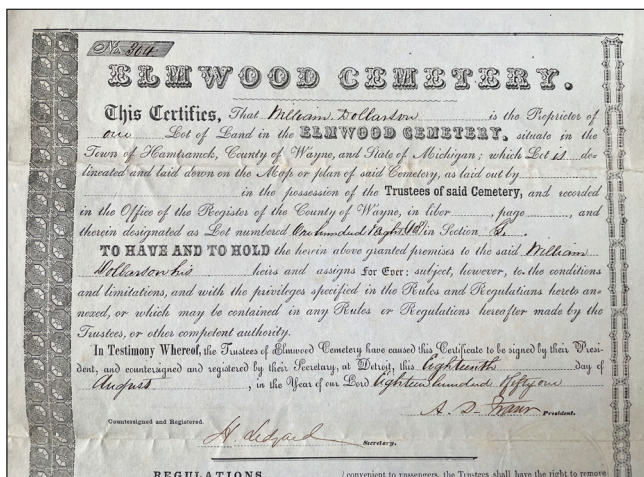 No. 304
ELMWOOD CEMETERY.
This Certifies, That William Dollarson is the Proprietor of
one Lot of Land in the ELMWOOD CEMETERY, situate in the
Town of Hamtramck, County of Wayne, and State of Michigan; which Lot is de-
lineated and laid down on the Map or plan of said Cemetery, as laid out by
in the possession of the Trustees of said Cemetery, and recorded
in the Office of the Register of the County of Wayne, in liber, page, and
therein designated as Lot numbered One hundred Eight in Section
TO HAVE AND TO HOLD the herein above granted premises to the said William
Dollarson his heirs and assigns For Ever; subject, however, to the conditions
and limitations, and with the privileges specified in the Rules and Regulations hereto an-
nexed, or which may be contained in any Rules or Regulations hereafter made by the
Trustees, or other competent authority.
In Testimony Whereof, the Trustees of Elmwood Cemetery have caused this Certificate to be signed by their Presi-
dent, and countersigned and registered by their Secretary, at Detroit, this Eighteenth day of
August, in the Year of our Lord Eighteen hundred Fifty one
A. D. President.
Countersigned and Registered.
H. Ledyard Secretary.
REGULATIONS
convenient to passengers, the Trustees shall have the right to remove